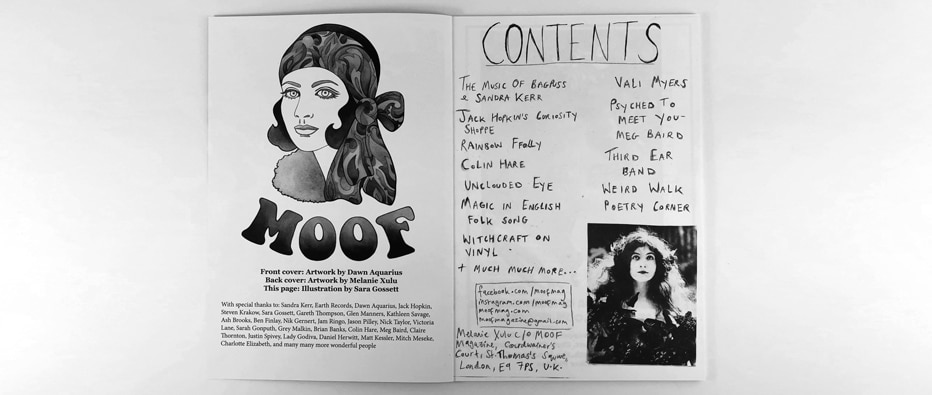 MOOF
Front cover: Artwork by Dawn Aquarius
Back cover: Artwork by Melanie Xulu
This page: Illustration by Sara Gossett
With special thanks to: Sandra Kerr, Earth Records, Dawn Aquarius, Jack Hopkin,
Steven Krakow, Sara Gossett, Gareth Thompson, Glen Manners, Kathleen Savage,
Ash Brooks, Ben Finlay, Nik Gernert, Jam Ringo, Jason Pilley, Nick Taylor, Victoria
Lane, Sarah Gonputh, Grey Malkin, Brian Banks, Colin Hare, Meg Baird, Claire
Thornton, Justin Spivey, Lady Godiva, Daniel Herwitt, Matt Kessler, Mitch Meseke,
Charlotte Elizabeth, and many many more wonderful people
CONTENTS
THE MUSIC OF BAGPUSS
& SANDRA KERR
JACK HOPKIN'S CURIOSITY
SHOPPE
RAINBOW FFOLLY
COLIN HARE
UNCLOUDED EYE
MAGIC IN ENGLISH
FOLK SONG
WITCHCRAFT ON
VINYL
+ MUCH MUCH MORE...
facebook.com/moofmag
instagram.com/moofmag
moofmag.com
moofmagazine@gmail.com
Melanie Xulu c/o MOOF
Magazine, Cordwainer's
Court, St. Thomas's Square,
London, E9 7PS, U.K.
VALI MYERS
PSYCHED TO
MEET YOU-
MEG BAIRD
THIRD EAR
BAND
WEIRD WALK
POETRY CORNER